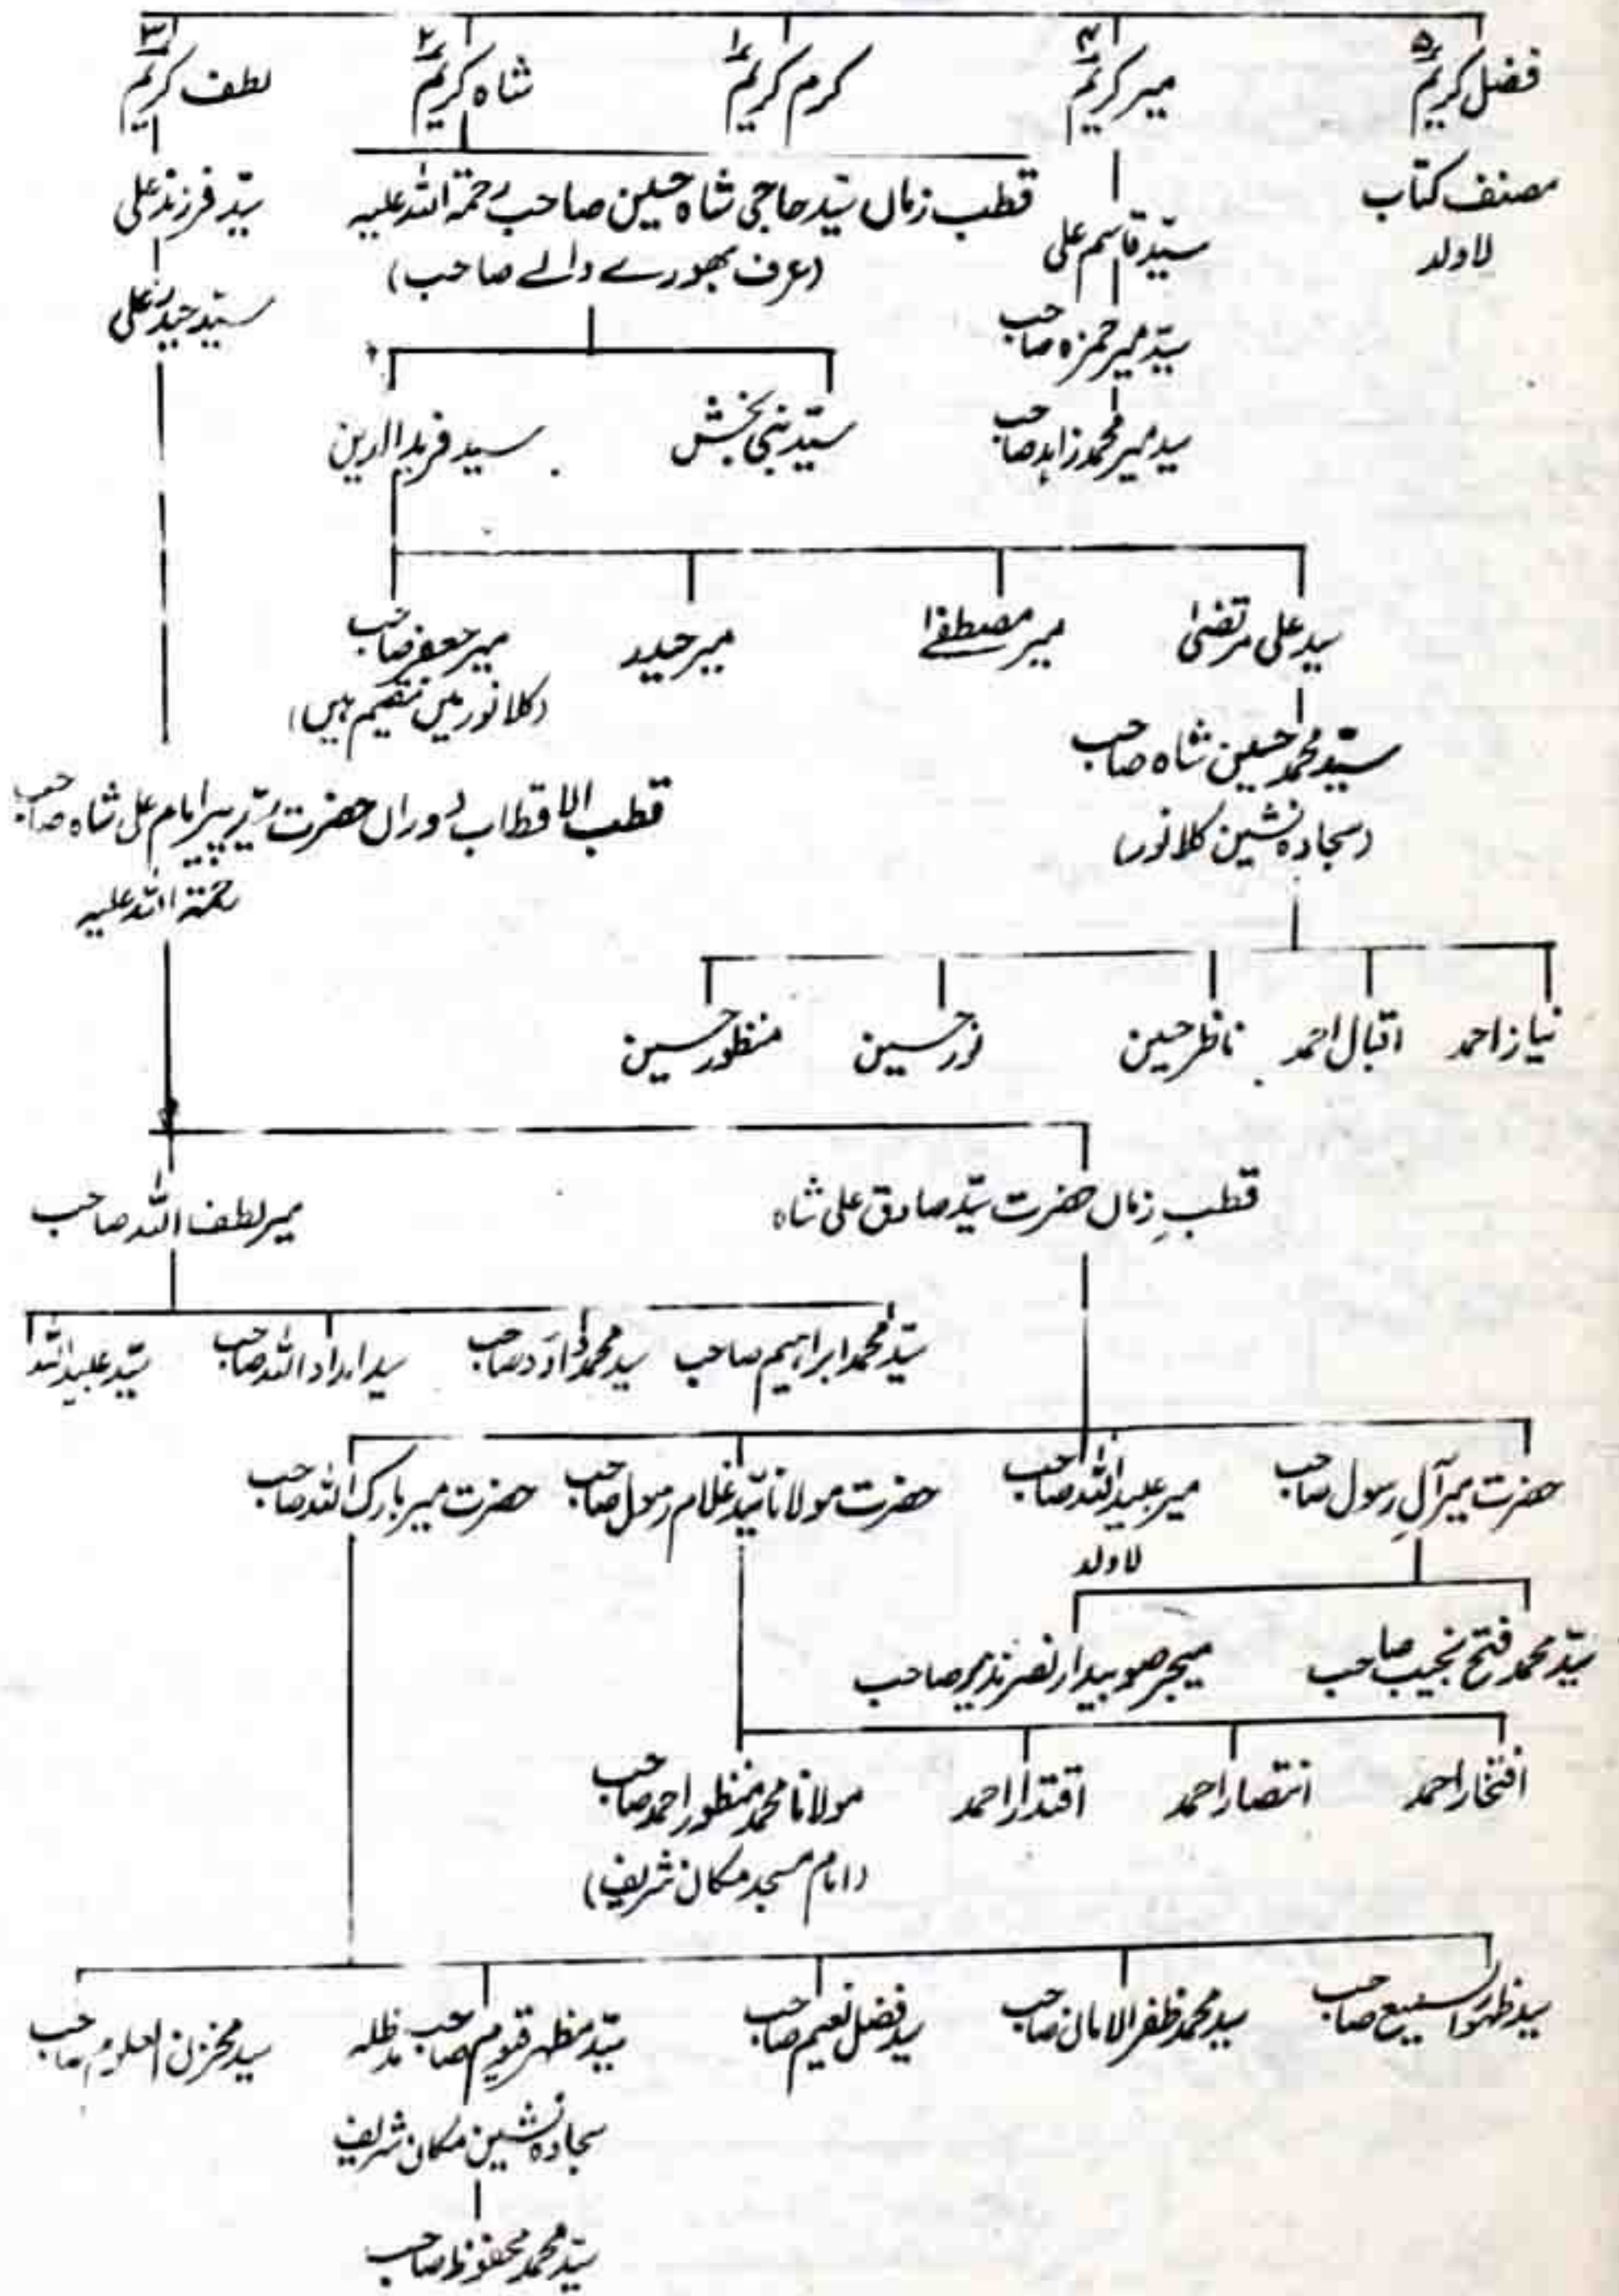 فضل کریم ۵ میر کریم ۴ کرم کریم ۱ شاہ کریم ۲ لطف کریم ۳
مصنف کتاب
لاولد
سید قاسم علی
سید میر حمزہ صاحب
سید میر محمد زاہد صاحب
قطب زماں سید حاجی شاہ حسین صاحب رحمۃ اللہ علیہ
(عرف بھورے والے صاحب)
سید فرزند علی
سید حیدر علی
سید نبی بخش سید فرید الدین
سید علی مرتضیٰ میر مصطفےٰ میر حیدر میر جعفر صاحب
(کلانور میں مقیم ہیں)
سید محمد حسین شاہ صاحب
(سجادہ نشین کلانور)
قطب الاقطاب دوراں حضرت سید پیر امام علی شاہ صاحب
رحمتہ اللہ علیہ
نیاز احمد اقبال احمد ناظر حسین نور حسین منظور حسین
قطبِ زماں حضرت سید صادق علی شاہ میر لطف اللہ صاحب
سید محمد ابراہیم صاحب سید محمد داؤد صاحب سید امداد اللہ صاحب سید عبید اللہ
حضرت میر آلِ رسول صاحب میر عبید اللہ صاحب حضرت مولانا سید غلام رسول صاحب حضرت میر بارک اللہ صاحب
لاولد
سید محمد فتح نجیب صاحب میجر صوبیدار نصر نذیر صاحب
افتخار احمد انتصار احمد اقتدار احمد مولانا محمد منظور احمد صاحب
(امام مسجد مکان شریف)
سید ظہور السمیع صاحب سید محمد ظفر الامان صاحب سید فضل نعیم صاحب سید مظہر قیوم صاحب مدظلہ سید مخزن العلوم صاحب
سجادہ نشین مکان شریف
سید محمد محفوظ صاحب